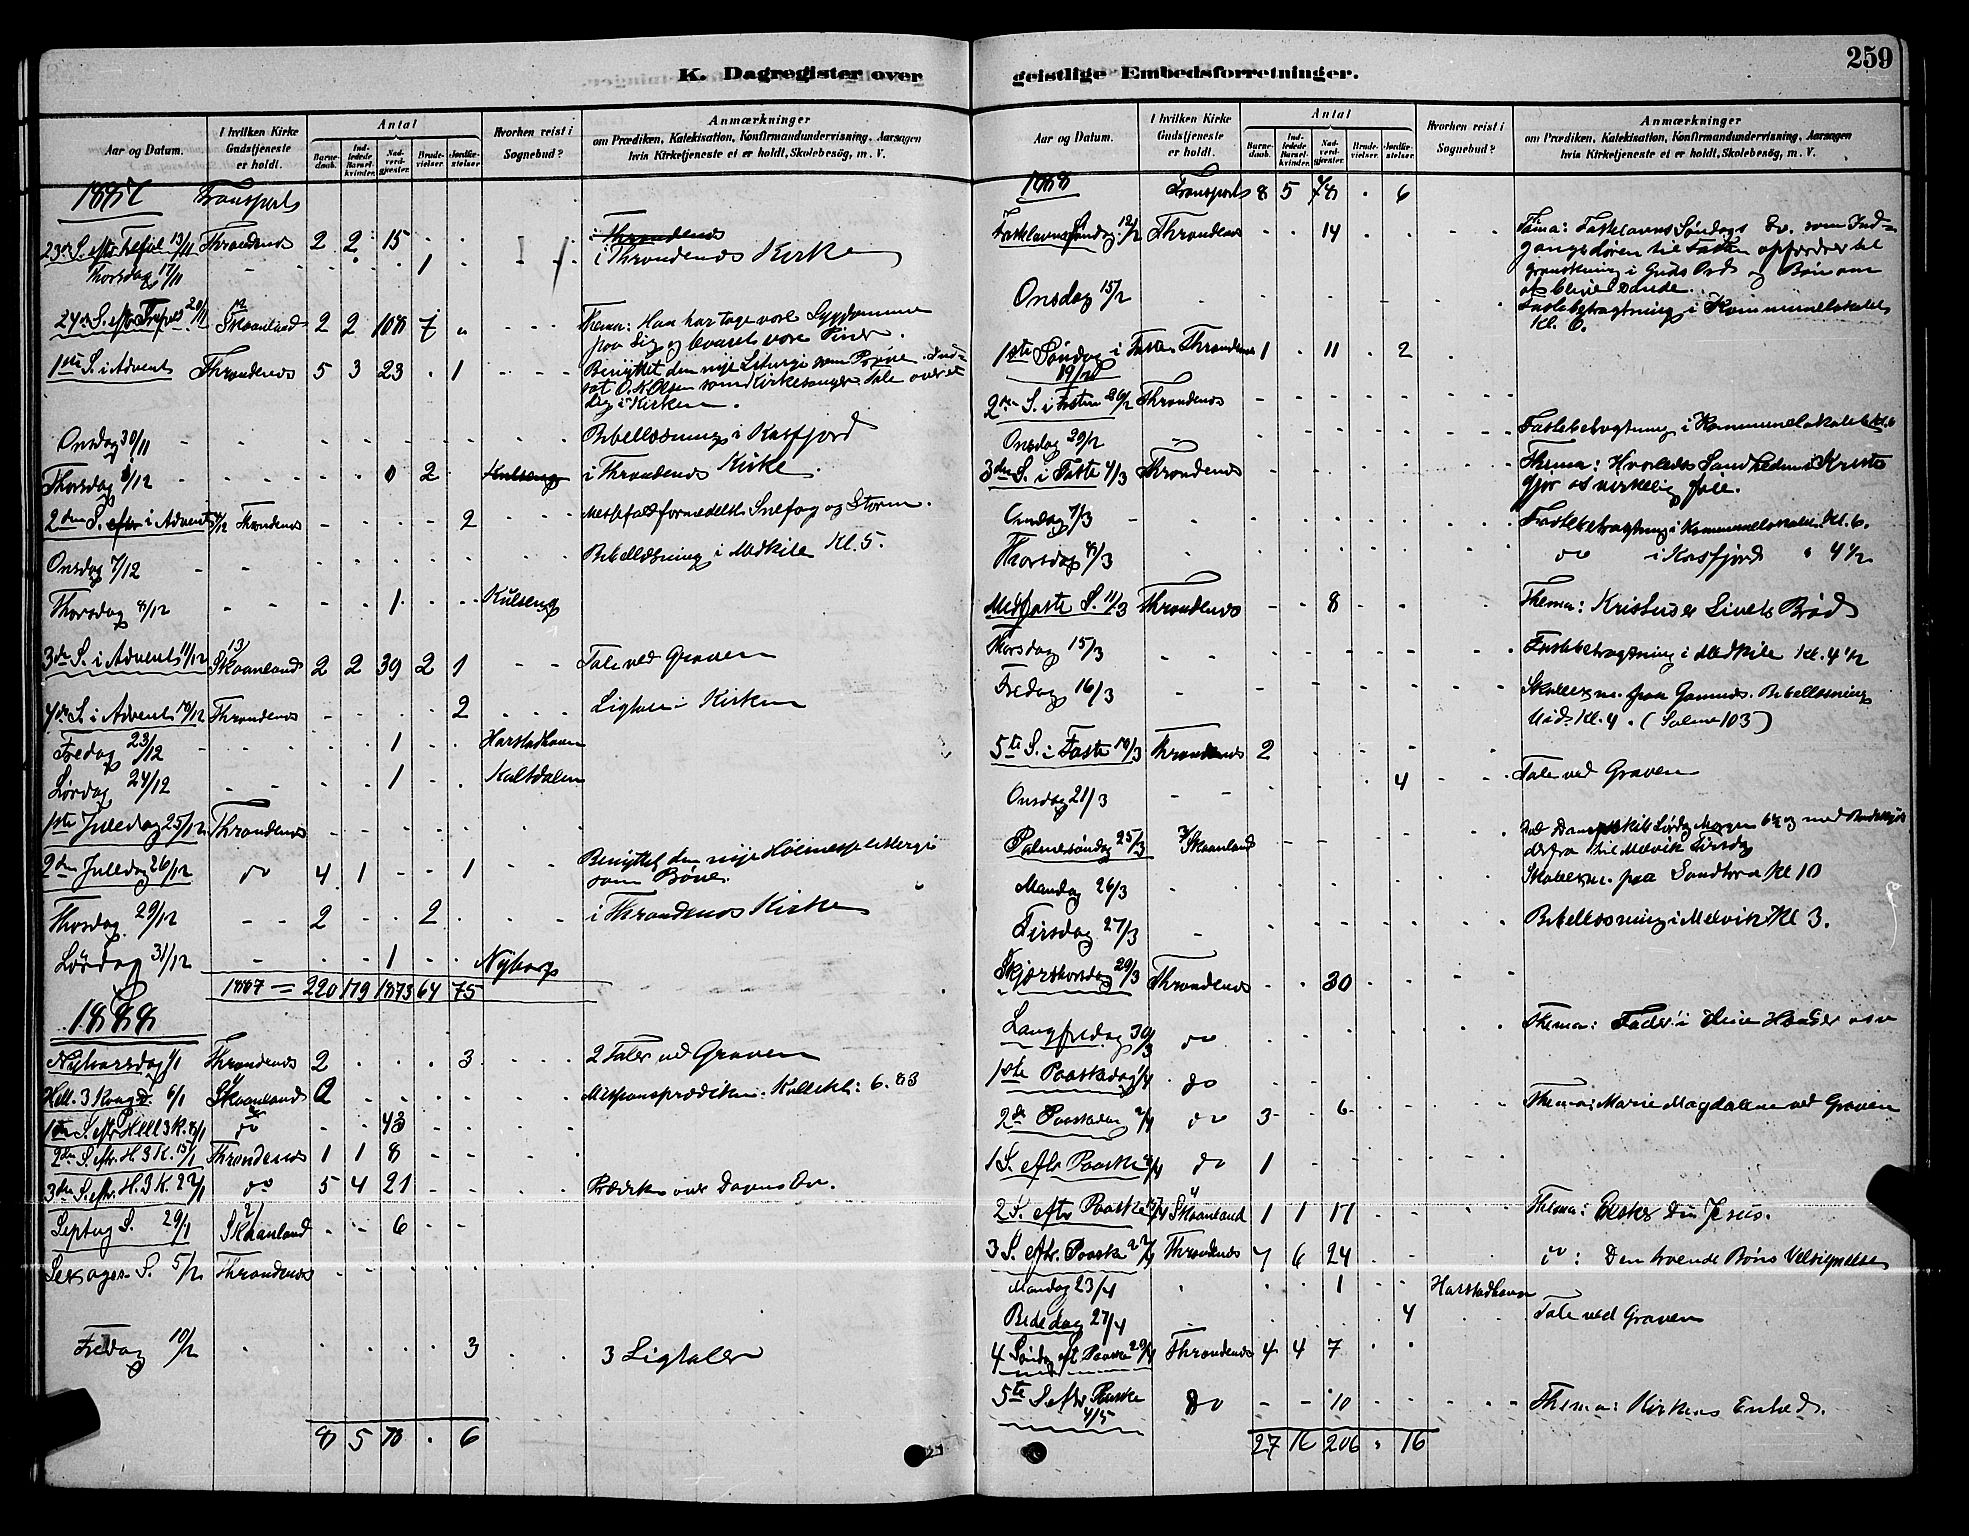 259
K. Dagregister over geistlige Embedsforretninger.
Aar og Datum. I hvilken Kirke Gudstjeneste er holdt. Antal Barnedaab. Indledede Barselkvinder. Nadverdgjester. Brudevielser. Jordfæstelser. Hvorhen reist i Sognebud? Anmærkninger om Prædiken, Katekisation, Konfirmandundervisning, Aarsagen hvis Kirketjeneste ei er holdt, Skolebesög, m. V.
1887 Transport
23de S. eftr Trefol 13/11 Throndenes 2 2 15 . .
Throndenes
Thorsdag 17/11 - - . . . 1 . i Throndenes Kirke
24de S. eftr Trefol 20/11 Skaanland 2 2 108 7 " - - - Thema: Han har tage vore Sygdomme
paa sig og baaret vore Piner.
1ste S. i Advent Throndenes 5 3 23 . 1 - - - Benyttet den nye Liturgi som Prøve. Ind-
sat O. K. Olsen som Kirkesanger. Tale over et
Lig i Kirken.
Onsdag 30/11 - - - - - - - - Bibellæsning i Kasfjord
Thorsdag 1/12 - - - - 0 2 . i Throndenes Kirke.
2den S. eftr i Advent 4/12 Throndenes - - - - 2 - - - Messefald formedelst Snefog og Storm.
Onsdag 7/12 - - - - - - - Bibellæsning i Medkile Kl. 5.
Thorsdag 8/12 - - - - 1 . - . Kulseng
3die S. i Advent 11/12 Skaanland 2 2 39 2 1 - - Tale ved Graven
4de S. i Advent 18/12 Throndenes - - - - 2 - - - Ligtale i Kirken
Fredag 23/12 - - - - 1 - . Harstadhavn
Lørdag 24/12 - - - - 1 - . Kaltdalen
1ste Juledag 25/12 Throndenes - - - - - - -
2den Juledag 26/12 do 4 1 - - 1 - - Benyttet den nye Høimesseliturgi
som Prøve.
Thorsdag 29/12 - - 2 - - 2 . - - i Throndenes Kirke
Lørdag 31/12 - - - 1 - - Nyborg
1887 = 220 179 1873 64 75
1888
Nytaarsdag 1/1 Throndenes 2 . . . 3 - - - 2 Taler ved Graven
Hell. 3 Kong D. 6/1 Skaanland 2 - - - - - - Missionsprædiken. Kollekt: 6.83
1ste S. eftr Hell 3 K. 8/1 do - - 43 - - -
2den S. eftr. H. 3 K. 15/1 Throndenes 1 1 8 - - -
3die S. eftr. H. 3 K. 22/1 do 5 4 21 - - - Prædiken over Dagens Ev.
Septug S. 29/1 Skaanland - - 6 - - -
Sexages S. 5/2 Throndenes - - - - - -
Fredag 10/2 . . . . 3 . . 3 Ligtaler
8 5 78 . 6
Aar og Datum. I hvilken Kirke Gudstjeneste er holdt. Antal Barnedaab. Indledede Barselkvinder. Nadverdgjester. Brudevielser. Jordfæstelser. Hvorhen reist i Sognebud? Anmærkninger om Prædiken, Katekisation, Konfirmandundervisning, Aarsagen hvis Kirketjeneste ei er holdt, Skolebesög, m. V.
1888 Transport 8 5 78 . 6
Fastelavns Søndag 12/2 Throndenes . . 14 . . - - Tema: Fastelavns Søndags Ev. som Ind-
gangsdøren til Fasten opfordrer til
granskning i Guds Ord og Bøn om
at blive seende.
Onsdag 15/2 - - - - - - - Fastebetragtning i Kommunelokalet
Kl. 6.
1ste Søndag i Faste Throndenes 1 . 11 . 2 .
19/2
2den S. i Fasten 26/2 Throndenes - - - - - - -
Onsdag 29/2 - - - - - - - Fastebetragtning i Kommunelokalet Kl. 6
3die S. i Faste 4/3 Throndenes - - - - - - Thema: Hvorledes Sandheden i Kristo
gjør os virkelig frie.
Onsdag 7/3 - - - - - - - Fastebetragtning i Kommunelokalet Kl. 6.
Thorsdag 8/3 - - - - - - - do i Kasfjord " 4 1/2
Midfaste S. 11/3 Throndenes - - 8 . - - - Thema: Kristus er Livets Brød
Thorsdag 15/3 - - - - - - - Fastebetragtning i Medkile Kl. 4 1/2
Fredag 16/3 - - - - - - - Skoleexm. paa Gamnes. Bibellæsning
Kl. 4. (Salme 103)
5te S. i Faste 18/3 Throndenes 2 . . . - - -
Onsdag 21/3 - - . . . 4 - - Tale ved Graven
Palmesøndag 25/3 Skaanland - - - - - -
derfra til Melvik Tirsdag
Mandag 26/3 - - - - - - - Skoleexm. paa Sandtorv Kl 10
Tirsdag 27/3 - - - - - - - Bibellæsning i Melvik Kl 3.
Skjærthorsdag 29/3 Throndenes - . 30 . . - -
Langfredag 30/3 do - - - - - - Thema: Fader i dine Hænder osv
1ste Paaskedag 1/4 do - - - - - -
2de Paaskedag 2/4 do 3 - 6 - - - - Thema: Marie Magdalene ved Graven
1 S. eftr Paaske 8/4 do 1 - - - - -
2 S. eftr Paaske 15/4 Skaanland 1 1 17 - - - - Thema: Elsker du Jesus.
3 S. eftr. Paaske 22/4 Throndenes 7 6 24 . - - - do: Den troende Bøns Velsignelse
Mandag 23/4 . . . 1 . - Harstadhavn
Bededag 27/4 - 4 . . Tale ved Graven
4 Søndag eft. Paaske 29/4 Throndenes 4 4 7 . .
5te S. eftr. Paaske do - - 10 - - - - Thema: Kirkens Enhed.
4/5
27 16 206 . 16